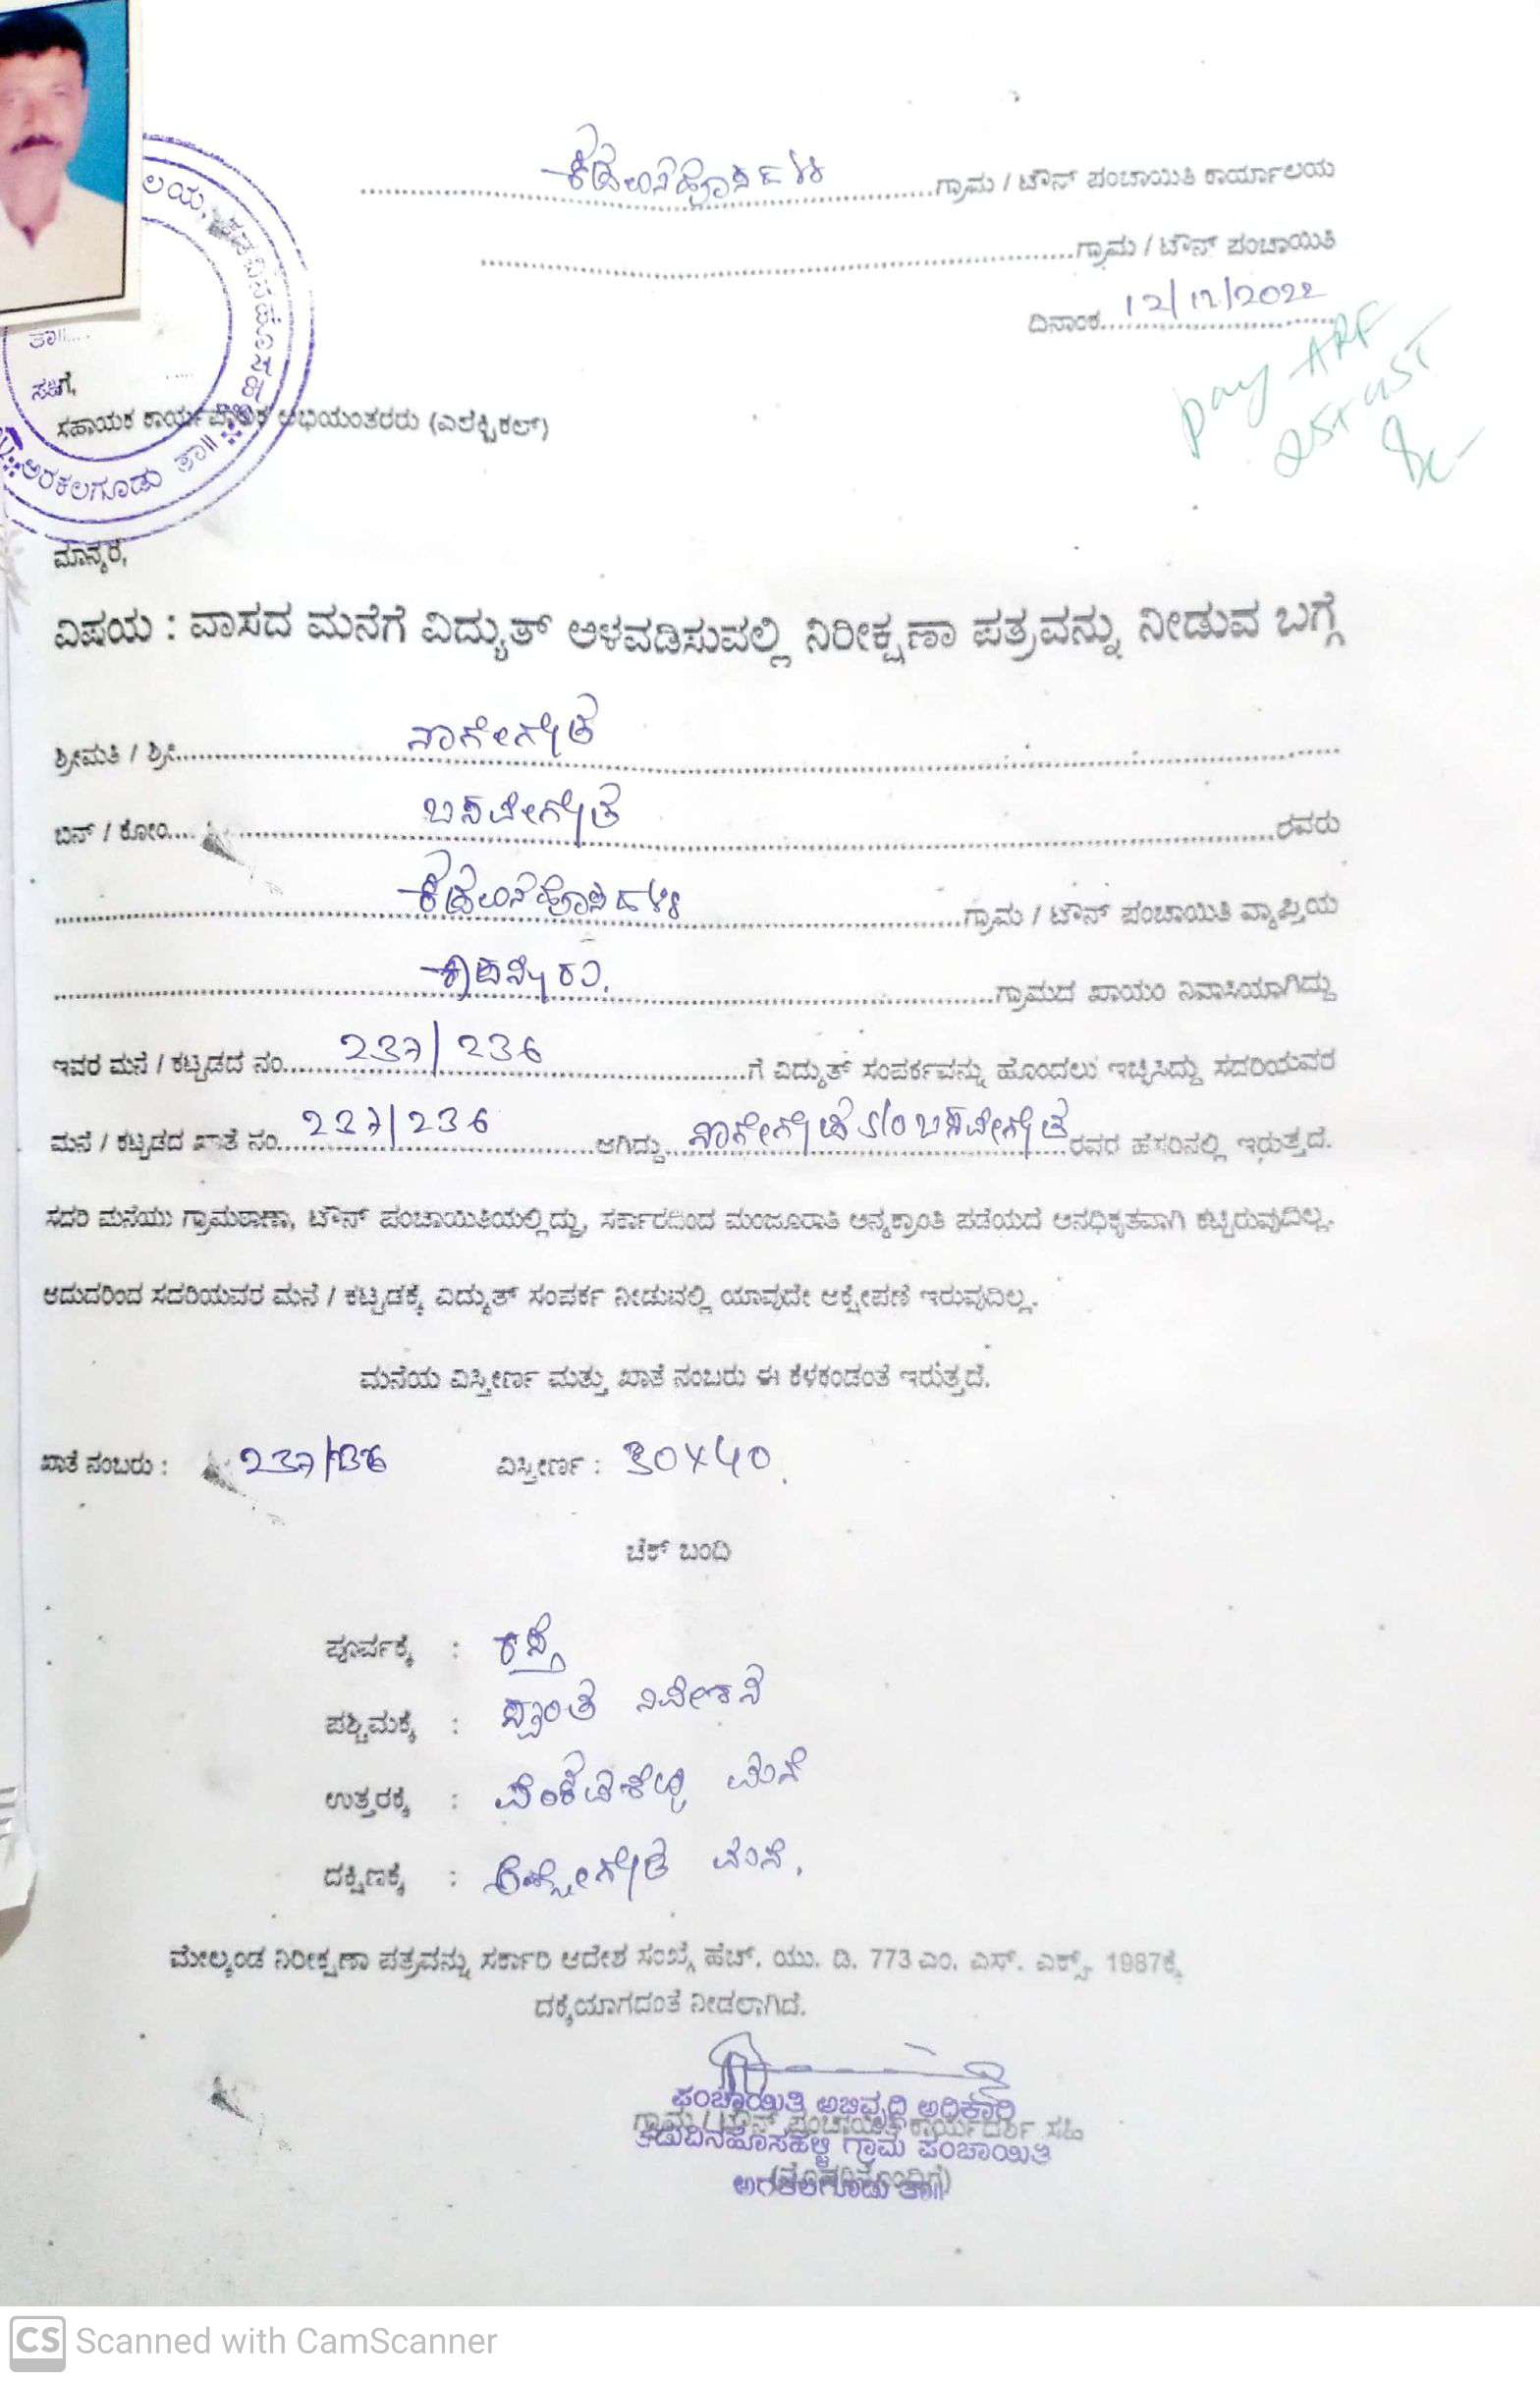 ಕಡುವಿನಹೊಸಹಳ್ಳಿ ಗ್ರಾಮ / ಟೌನ್ ಪಂಚಾಯಿತಿ ಕಾರ್ಯಾಲಯ
ಗ್ರಾಮ / ಟೌನ್ ಪಂಚಾಯಿತಿ
ದಿನಾಂಕ 12/12/2022
pay ARF
ತಾ॥
ಅರಕಲಗೂಡು ತಾ॥
ಸಹಾಯಕ ಕಾರ್ಯಪಾಲಕ ಅಭಿಯಂತರರು (ಎಲೆಕ್ಟ್ರಿಕಲ್)
ಮಾನ್ಯರೆ,
ವಿಷಯ : ವಾಸದ ಮನೆಗೆ ವಿದ್ಯುತ್ ಅಳವಡಿಸುವಲ್ಲಿ ನಿರೀಕ್ಷಣಾ ಪತ್ರವನ್ನು ನೀಡುವ ಬಗ್ಗೆ
ಶ್ರೀಮತಿ / ಶ್ರೀ ನಾಗೇಗೌಡ
ಬಿನ್ / ಕೋಂ ಬಸವೇಗೌಡ ರವರು
ಕಡುವಿನಹೊಸಹಳ್ಳಿ ಗ್ರಾಮ / ಟೌನ್ ಪಂಚಾಯಿತಿ ವ್ಯಾಪ್ತಿಯ
ಗ್ರಾಮದ ಖಾಯಂ ನಿವಾಸಿಯಾಗಿದ್ದು
ಇವರ ಮನೆ / ಕಟ್ಟಡದ ನಂ 237/236 ಗೆ ವಿದ್ಯುತ್ ಸಂಪರ್ಕವನ್ನು ಹೊಂದಲು ಇಚ್ಛಿಸಿದ್ದು ಸದರಿಯವರ
ಮನೆ / ಕಟ್ಟಡದ ಖಾತೆ ನಂ 237/236 ಆಗಿದ್ದು ನಾಗೇಗೌಡ S/O ಬಸವೇಗೌಡ ರವರ ಹೆಸರಿನಲ್ಲಿ ಇರುತ್ತದೆ.
ಸದರಿ ಮನೆಯು ಗ್ರಾಮಠಾಣಾ, ಟೌನ್ ಪಂಚಾಯಿತಿಯಲ್ಲಿದ್ದು, ಸರ್ಕಾರದಿಂದ ಮಂಜೂರಾತಿ ಅನ್ಯಕ್ರಾಂತಿ ಪಡೆಯದೆ ಅನಧಿಕೃತವಾಗಿ ಕಟ್ಟಿರುವುದಿಲ್ಲ.
ಆದುದರಿಂದ ಸದರಿಯವರ ಮನೆ / ಕಟ್ಟಡಕ್ಕೆ ವಿದ್ಯುತ್ ಸಂಪರ್ಕ ನೀಡುವಲ್ಲಿ ಯಾವುದೇ ಆಕ್ಷೇಪಣೆ ಇರುವುದಿಲ್ಲ.
ಮನೆಯ ವಿಸ್ತೀರ್ಣ ಮತ್ತು ಖಾತೆ ನಂಬರು ಈ ಕೆಳಕಂಡಂತೆ ಇರುತ್ತದೆ.
ಖಾತೆ ನಂಬರು : 237/236 ವಿಸ್ತೀರ್ಣ : 30X40
ಚೆಕ್ ಬಂದಿ
ಪೂರ್ವಕ್ಕೆ : ರಸ್ತೆ
ಪಶ್ಚಿಮಕ್ಕೆ : ಸ್ವಂತ ನಿವೇಶನ
ಉತ್ತರಕ್ಕೆ : ಮನೆ
ದಕ್ಷಿಣಕ್ಕೆ : ಮನೆ.
ಮೇಲ್ಕಂಡ ನಿರೀಕ್ಷಣಾ ಪತ್ರವನ್ನು ಸರ್ಕಾರಿ ಆದೇಶ ಸಂಖ್ಯೆ ಹೆಚ್. ಯು. ಡಿ. 773 ಎಂ. ಎಸ್. ಎಕ್ಸ್. 1987ಕ್ಕೆ
ದಕ್ಕೆಯಾಗದಂತೆ ನೀಡಲಾಗಿದೆ.
ಪಂಚಾಯಿತಿ ಅಭಿವೃದ್ಧಿ ಅಧಿಕಾರಿ
ಗ್ರಾಮ / ಟೌನ್ ಪಂಚಾಯಿತಿ ಕಾರ್ಯದರ್ಶಿ ಸಹಿ
ಕಡುವಿನಹೊಸಹಳ್ಳಿ ಗ್ರಾಮ ಪಂಚಾಯಿತಿ
(ಮೊಹರಿನೊಂದಿಗೆ)
ಅರಕಲಗೂಡು ತಾ॥
CS Scanned with CamScanner